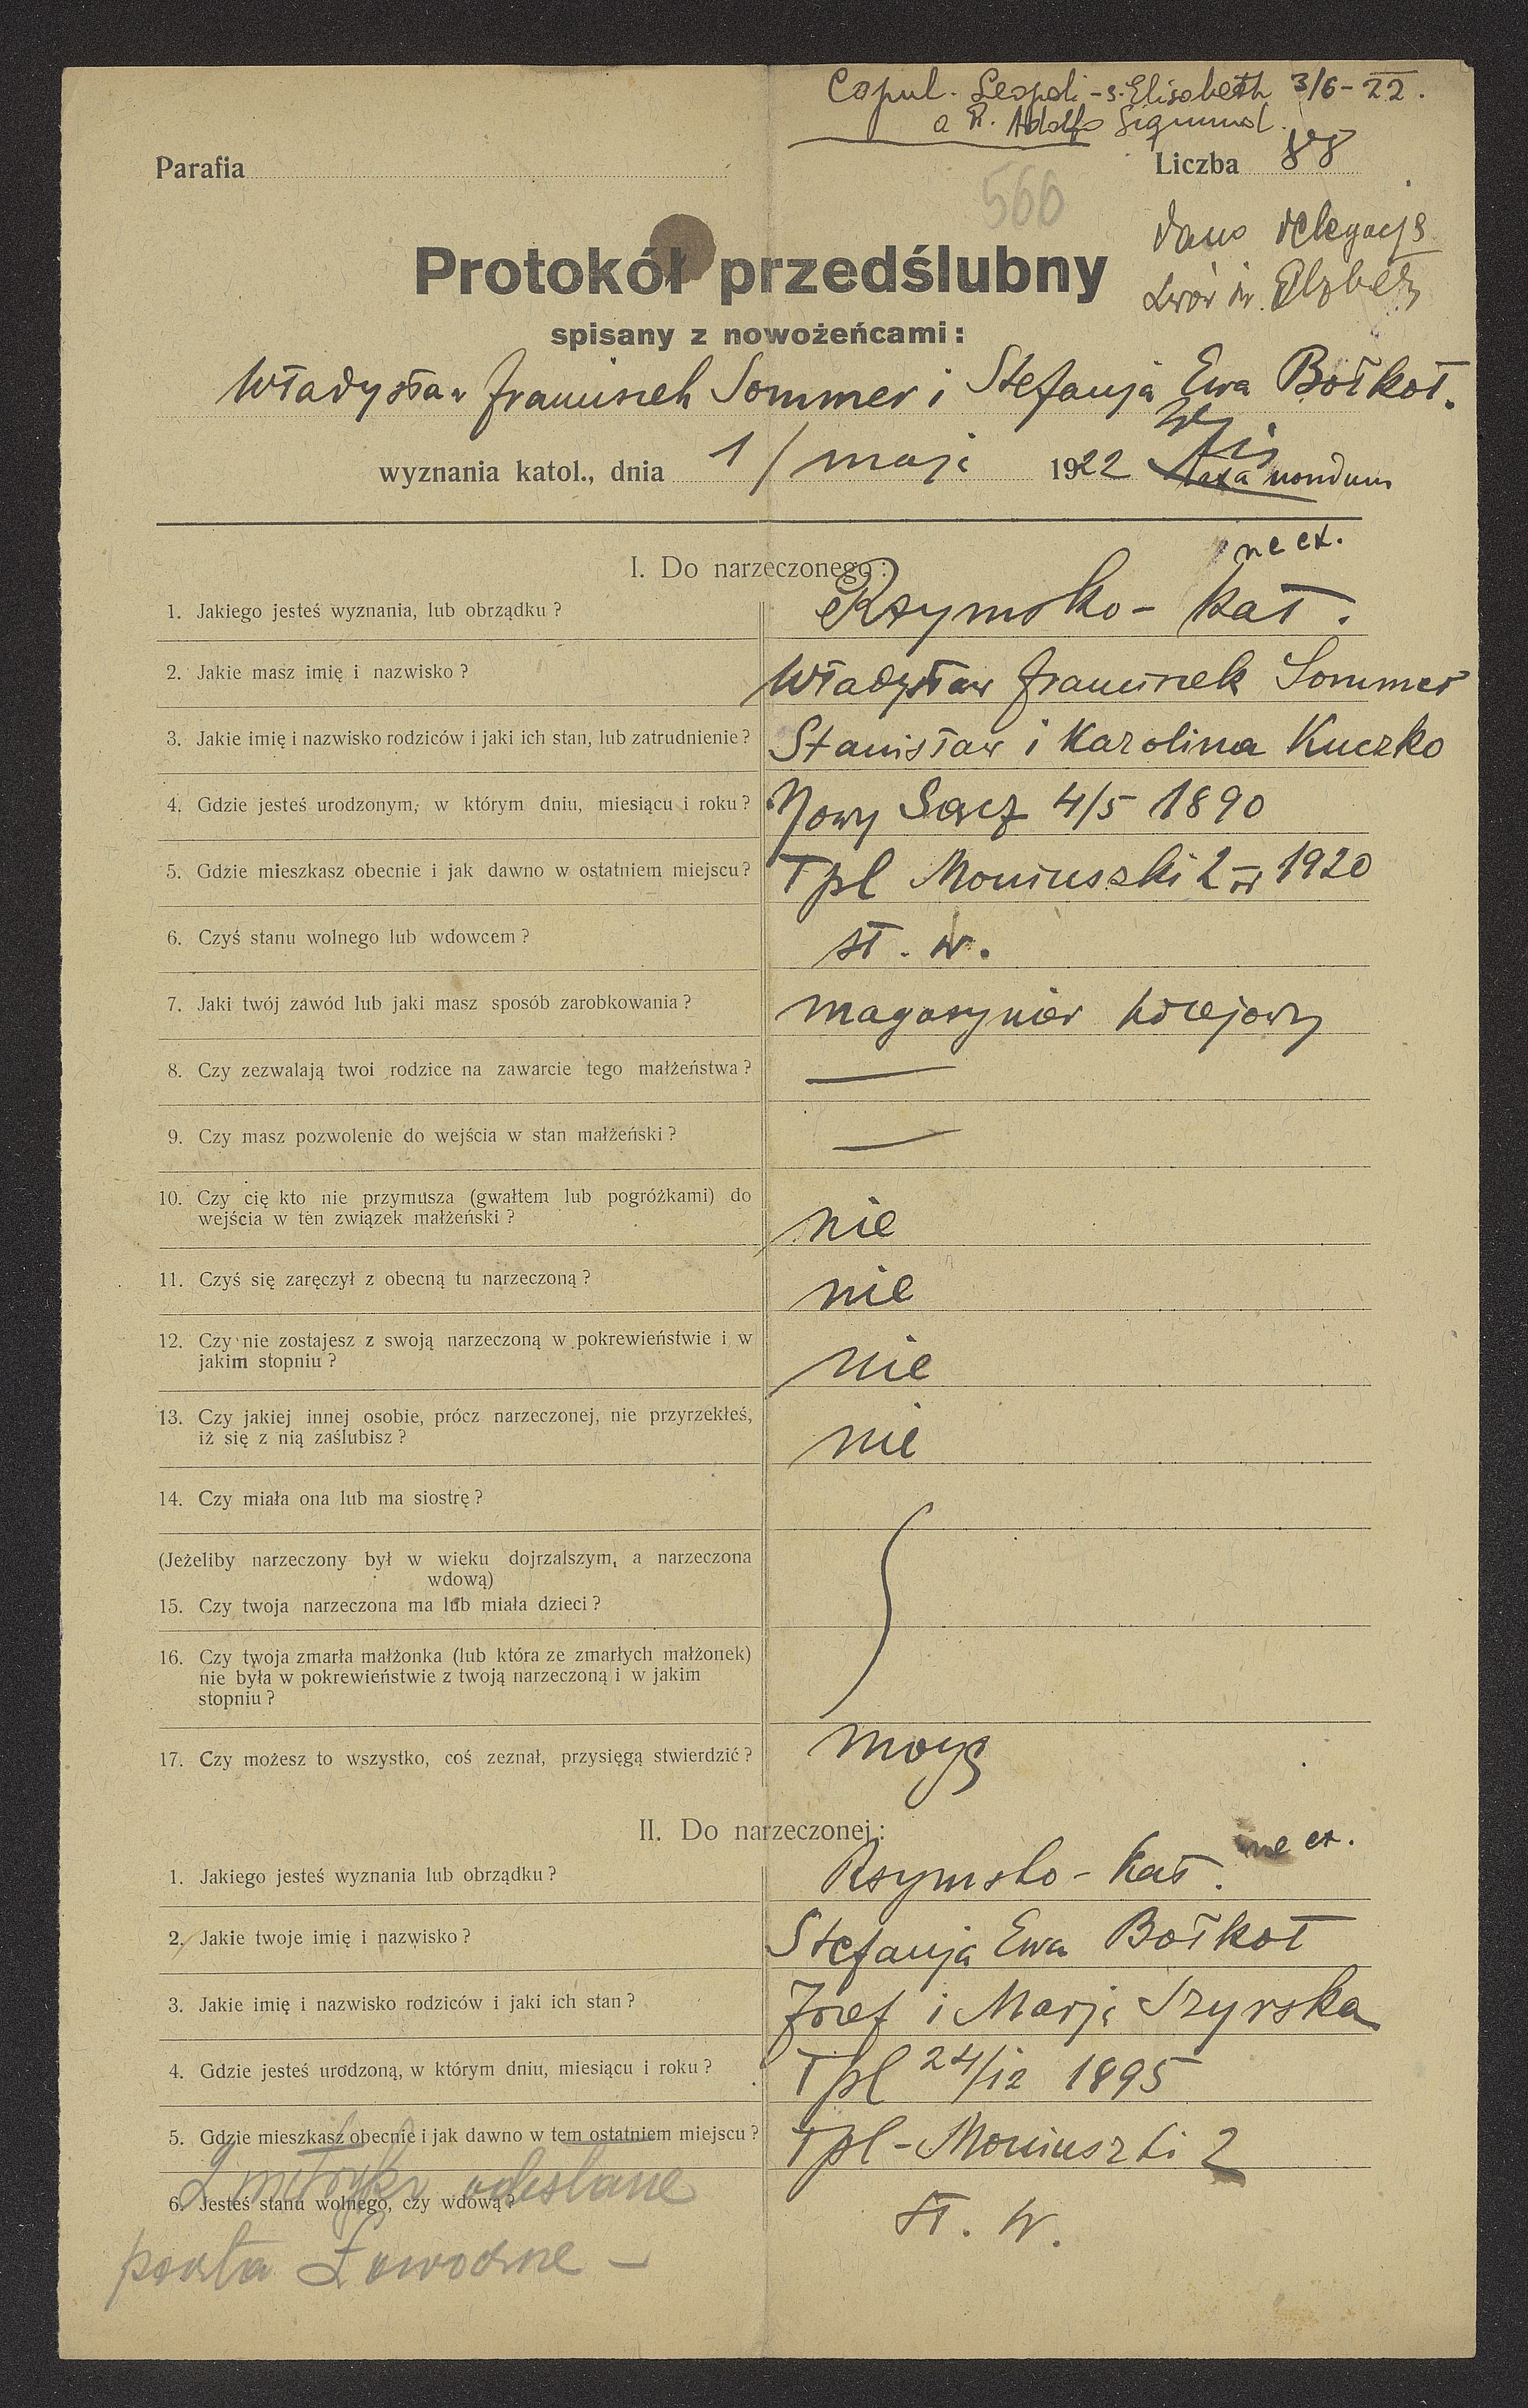 Copul. Leopoli - s. Elisabeth 3/6 - 22.
a R. Adolfo Sigmund.
Parafia
Liczba 88
560
dano delegacje
Lwów św. Elżbiety
Protokół przedślubny
spisany z nowożeńcami:
Władysław Franciszek Sommer i Stefanja Ewa Bołkot.
wyznania katol., dnia 1/ maja 1922
taxa nondum
I. Do narzeczonego:
ne ex.
1. Jakiego jesteś wyznania, lub obrządku? Rzymsko - kat.
2. Jakie masz imię i nazwisko? Władysław Franciszek Sommer
3. Jakie imię i nazwisko rodziców i jaki ich stan, lub zatrudnienie? Stanisław i Karolina Kuczko
4. Gdzie jesteś urodzonym, w którym dniu, miesiącu i roku? Nowy Sącz 4/5 1890
5. Gdzie mieszkasz obecnie i jak dawno w ostatniem miejscu? Tpl Moniuszki 2 1920
6. Czyś stanu wolnego lub wdowcem? st. w.
7. Jaki twój zawód lub jaki masz sposób zarobkowania? magazynier kolejowy
8. Czy zezwalają twoi rodzice na zawarcie tego małżeństwa? —
9. Czy masz pozwolenie do wejścia w stan małżeński? —
10. Czy cię kto nie przymusza (gwałtem lub pogróżkami) do
wejścia w ten związek małżeński? nie
11. Czyś się zaręczył z obecną tu narzeczoną? nie
12. Czy nie zostajesz z swoją narzeczoną w pokrewieństwie i w
jakim stopniu? nie
13. Czy jakiej innej osobie, prócz narzeczonej, nie przyrzekłeś,
iż się z nią zaślubisz? nie
14. Czy miała ona lub ma siostrę?
(Jeżeliby narzeczony był w wieku dojrzalszym, a narzeczona
wdową)
15. Czy twoja narzeczona ma lub miała dzieci?
16. Czy twoja zmarła małżonka (lub która ze zmarłych małżonek)
nie była w pokrewieństwie z twoją narzeczoną i w jakim
stopniu?
17. Czy możesz to wszystko, coś zeznał, przysięgą stwierdzić? mogę
II. Do narzeczonej:
ne ex.
1. Jakiego jesteś wyznania lub obrządku? Rzymsko - kat.
2. Jakie twoje imię i nazwisko? Stefanja Ewa Bołkot
3. Jakie imię i nazwisko rodziców i jaki ich stan? Józef i Marja Szyrska
4. Gdzie jesteś urodzoną, w którym dniu, miesiącu i roku? Tpl 24/12 1895
5. Gdzie mieszkasz obecnie i jak dawno w tem ostatniem miejscu? Tpl - Moniuszki 2
6. Jesteś stanu wolnego, czy wdową? st. w.
2 metryki odesłane
poczta Ławoczne -